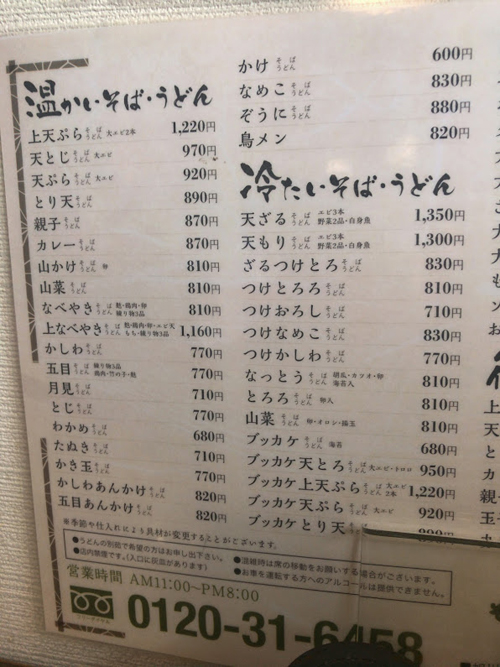 温かい・そば・うどん
上天ぷら そば うどん 大エビ2本 1,220円
天とじ そば うどん 大エビ 970円
天ぷら そば うどん 大エビ 920円
とり天 そば うどん 890円
親子 そば うどん 870円
カレー そば うどん 870円
山かけ そば うどん 卵 810円
山菜 そば うどん 810円
なべやき そば うどん 麩・鶏肉・卵 練り物3品 810円
上なべやき そば うどん 麩・鶏肉・卵・エビ天 もち・練り物3品 1,160円
かしわ そば うどん 770円
五目 そば うどん 練り物3品 鶏肉・竹の子・麩 770円
月見 そば うどん 710円
とじ そば うどん 770円
わかめ そば うどん 680円
たぬき そば うどん 710円
かき玉 そば うどん 770円
かしわあんかけ そば うどん 820円
五目あんかけ そば うどん 820円
かけ そば うどん 600円
なめこ そば うどん 830円
ぞうに そば うどん 880円
鳥メン 820円
冷たい・そば・うどん
天ざる そば うどん エビ3本 野菜2品・白身魚 1,350円
天もり そば うどん エビ3本 野菜2品・白身魚 1,300円
ざるつけとろ そば うどん 830円
つけとろろ そば うどん 810円
つけおろし そば うどん 710円
つけなめこ そば うどん 830円
つけかしわ そば うどん 770円
なっとう そば うどん 胡瓜・カツオ・卵 海苔入 810円
とろろ そば うどん 卵入 810円
山菜 そば うどん 卵・オロシ・揚玉 810円
ブッカケ そば うどん 海苔 680円
ブッカケ天とろ そば うどん 大エビ・トロロ 950円
ブッカケ上天ぷら そば うどん 大エビ 2本 1,220円
ブッカケ天ぷら そば うどん 大エビ 920円
ブッカケとり天 そば うどん
※季節や仕入れにより具材が変更することがございます。
●うどんの別茹で希望の方はお申し出下さい。
●店内禁煙です。(入口に灰皿があります)
●混雑時は席の移動をお願いする場合がございます。
●お車を運転する方へのアルコールは提供できません。
営業時間 AM11:00~PM8:00
フリーダイヤル
0120-31-6458